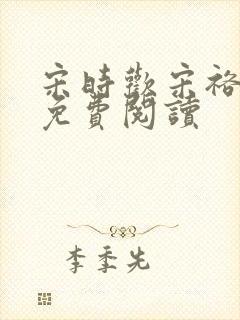 宋時歡宋裕
免費閱讀
李季先